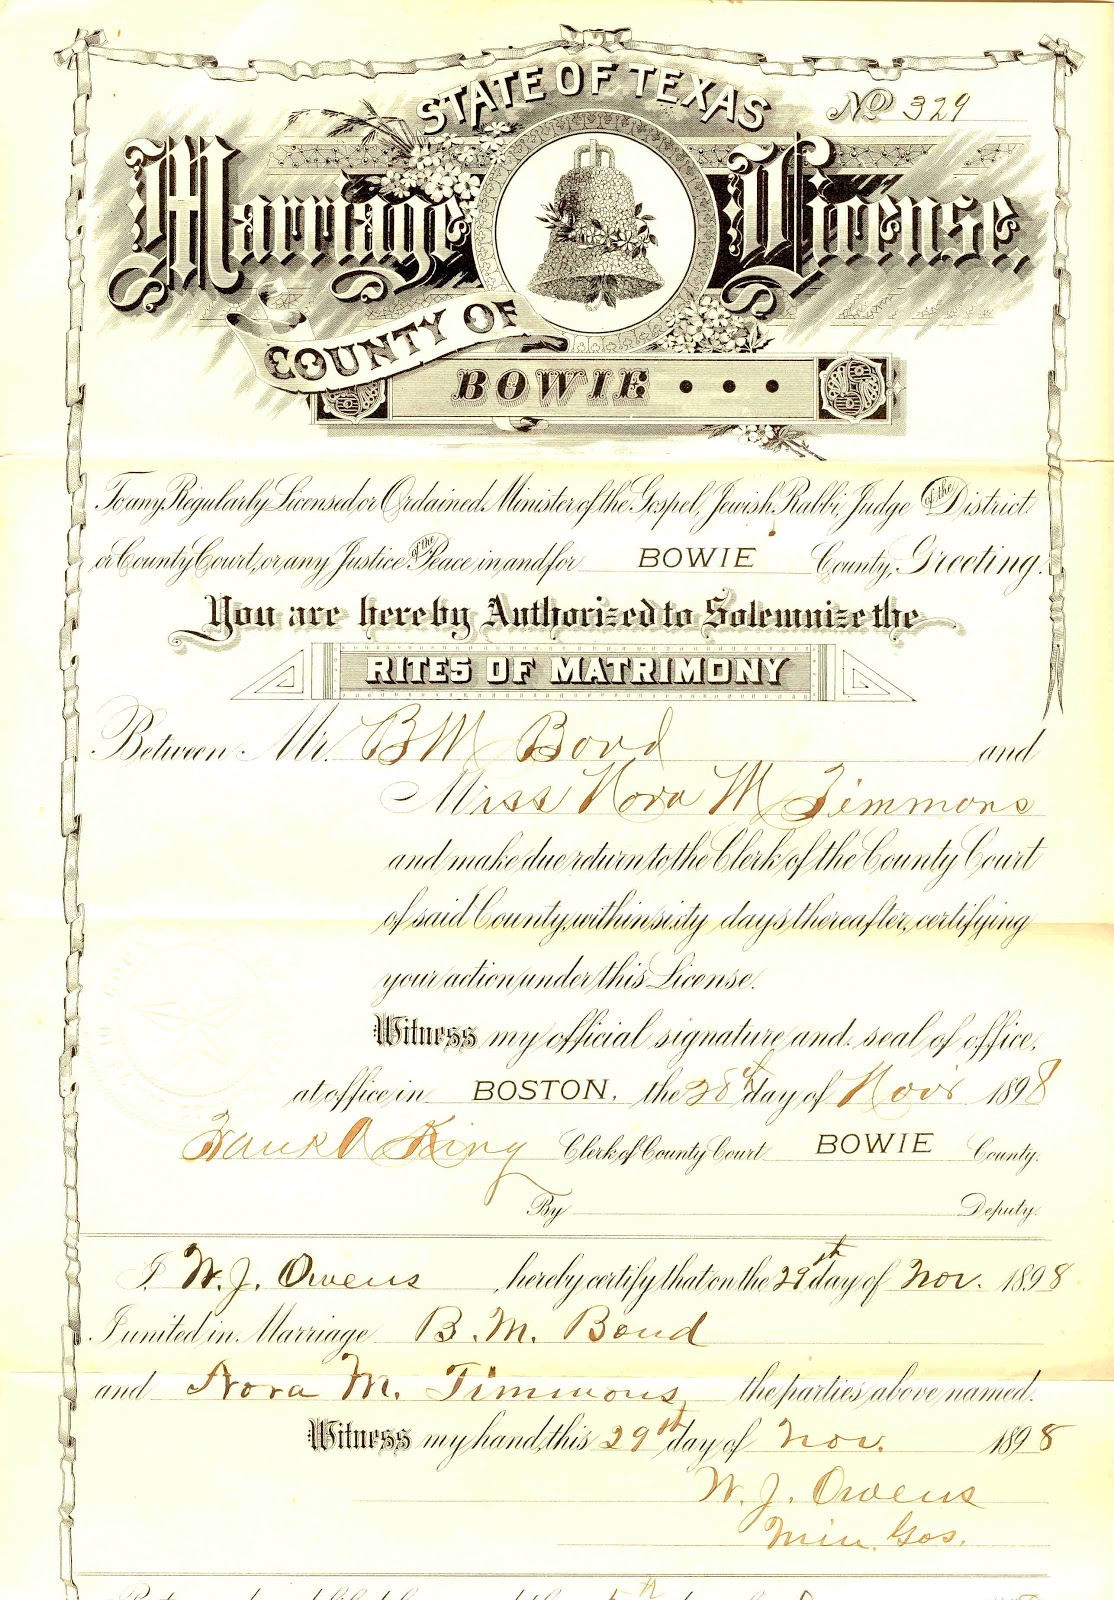 STATE OF TEXAS
No 329
Marriage License.
COUNTY OF
BOWIE
To any Regularly Licensed or Ordained Minister of the Gospel, Jewish Rabbi, Judge of the District
or County Court, or any Justice of the Peace in and for BOWIE County, Greeting.
You are hereby Authorized to Solemnize the
RITES OF MATRIMONY
Between Mr. B M Bond and
Miss Nora M Timmons
and make due return to the Clerk of the County Court
of said County, within sixty days thereafter, certifying
your action under this License.
Witness my official signature and seal of office,
at office in BOSTON, the 28th day of Nov 1898
Frank A King Clerk of County Court BOWIE County.
By Deputy.
I W. J. Owens , hereby certify that on the 29th day of Nov. 1898
I united in Marriage B. M. Bond
and Nora M. Timmons, the parties above named.
Witness my hand, this 29th day of Nov. 1898
W. J. Owens
Min. Gos.